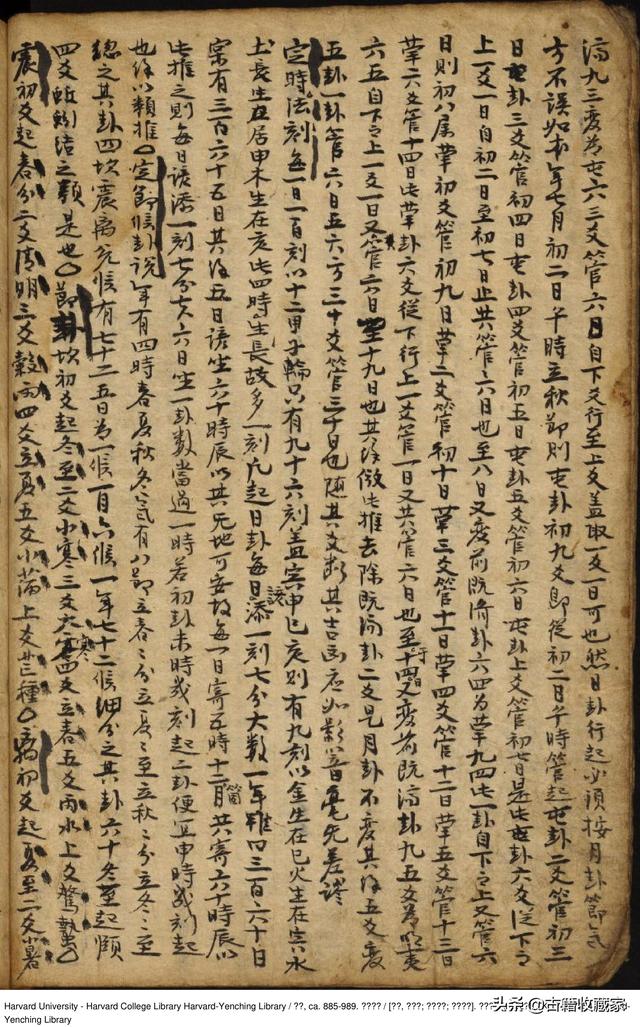 濟九三變為屯六三爻管六日自下爻行至上爻蓋取一爻一日可也然日卦行起必須按月卦節氣
方不誤如本年七月初二日午時立秋節則屯卦初九爻即從初二日午時管起屯卦二爻管初三
日屯卦三爻管初四日屯卦四爻管初五日屯卦五爻管初六日屯卦上爻管初七日是屯卦六爻從下而
上一爻一日自初二日至初七日止共管六日也至八日又變前既濟卦六四為革九四此一卦自下之上又管六
日則初八属革初爻管初九日革二爻管初十日革三爻管十一日革四爻管十二日革五爻管十三日
革六爻管十四日此革卦六爻從下行上一爻管一日又共管六日也至十四日又變前既濟卦九五為明夷
六五自下之上一爻一日又管六日至十九日也其餘倣此推去除既濟卦二爻是月卦不變其餘五爻變
五卦一卦管六日五六方三十爻管三十日也随其爻断其吉凶应如影响毫无差谬
定時法刻每一日一百刻以十二甲子輪只有九十六刻蓋寅申巳亥則有九刻以金生在巳火生在寅水
土長生居申木生在亥此四時生長故多一刻凡起日卦每日該添一刻七分大数一年雖四三百六十日
宗有三百六十五日其餘五日該生六十時辰以其天地可安故每一日寄五時十二箇月共寄六十時辰以
此推之則每日該添一刻七分大六日生一卦数當過一時若初卦未時或刻起二卦便宜申時或刻起
也餘以類推〇定節候卦說年有四時春夏秋冬气有八節立春春分立夏夏至立秋秋分立冬冬至
總之其卦四坎震离兌候有七十二五日為一候一月六候一年七十二候細分之其卦六十冬至起頤
四爻蚯蚓結之類是也〇節卦坎初爻起冬至二爻小寒三爻大寒四爻立春五爻雨水上爻驚蟄〇
震初爻起春分二爻清明三爻穀雨四爻立夏五爻小滿上爻芒種〇離初爻起夏至二爻小暑
Harvard University - Harvard College Library Harvard-Yenching Library / ??, ca. 885-989. ???? / [??, ???; ????; ????].
Yenching Library
头条 @古籍收藏家